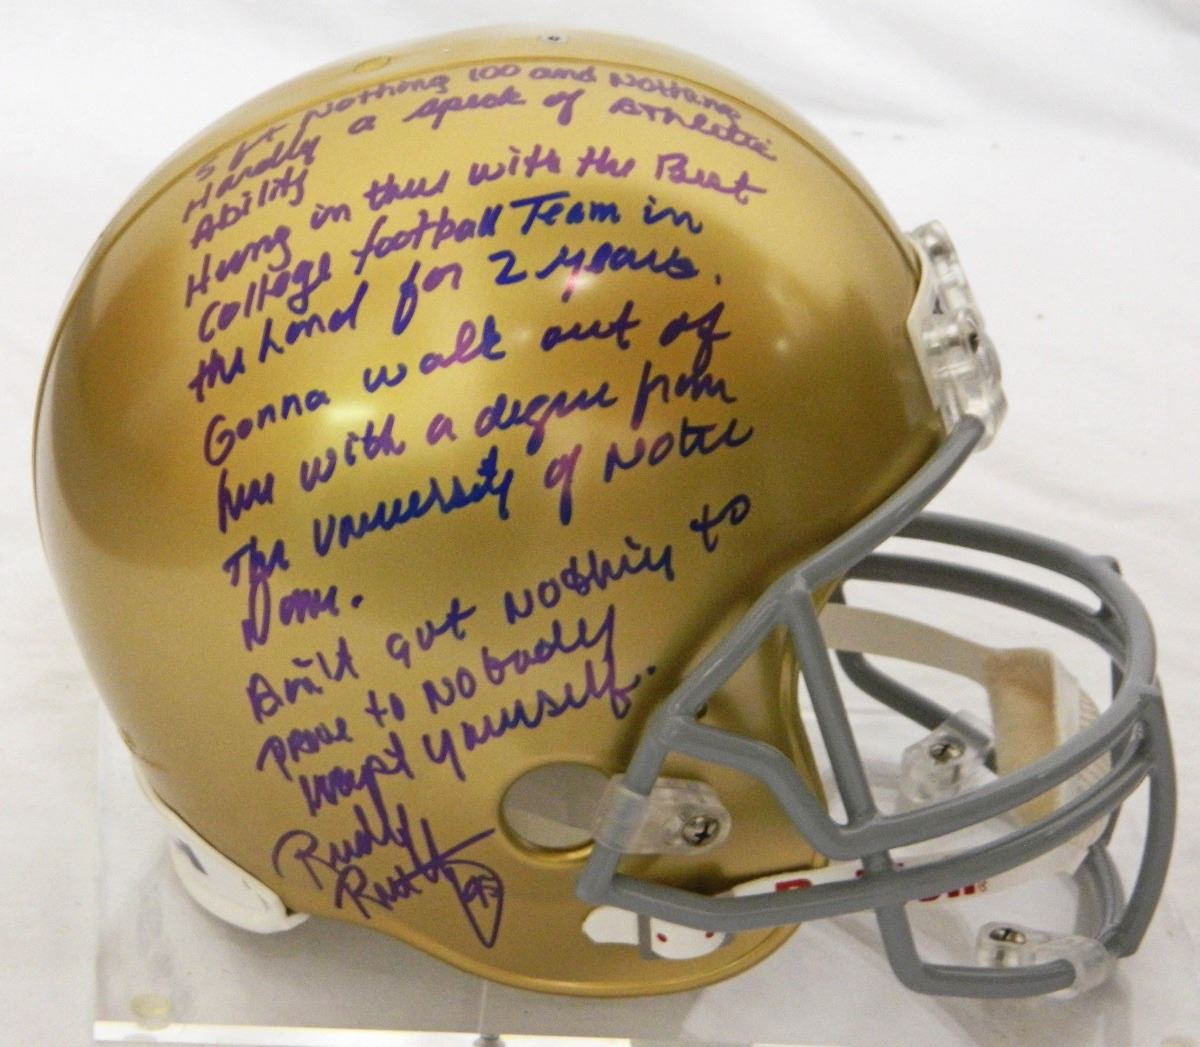 5 ft Nothing 100 and Nothing
Hardly a speck of Athletic
Ability
Hung in there with the Best
College football Team in
the Land for 2 years.
Gonna walk out of
here with a degree from
The University of Notre
Dame.
Ain't got Nothing to
prove to Nobody
except yourself.
Rudy
Ruettiger